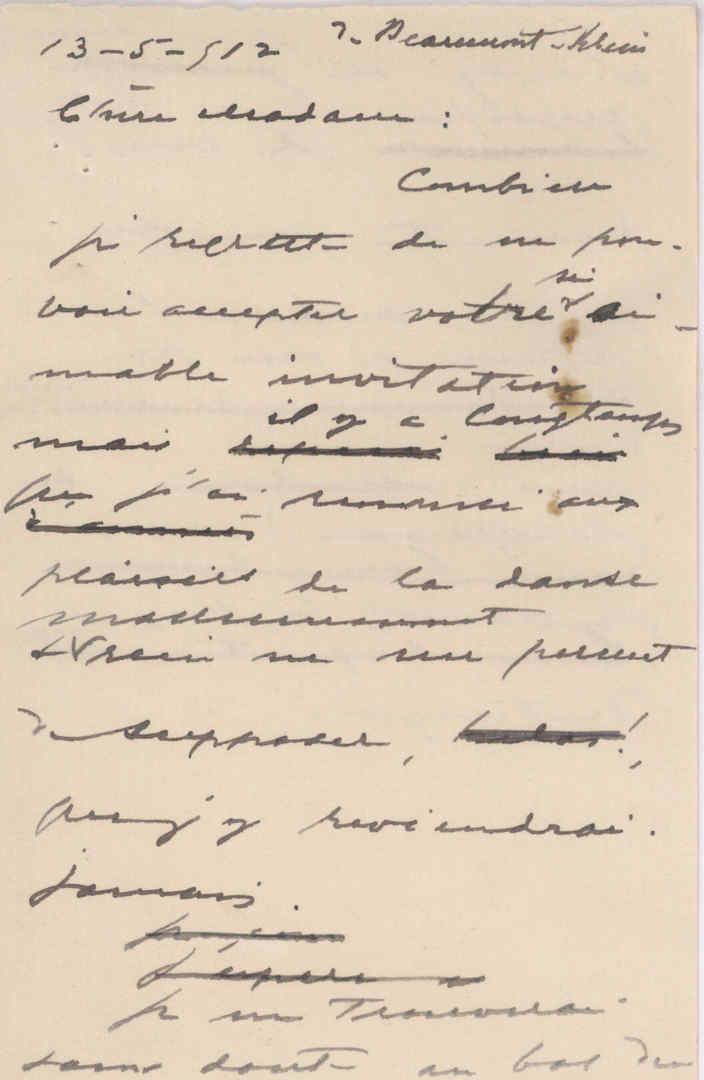 13-5-912
de Beaumont-Klein
Chère Madame :
Combien
je regrette de ne pou-
voir accepter votre si ai-
mable invitation
il y a longtemps
mais
que j'ai renoncé aux
plaisirs de la danse
& rien ne me permet
de supposer, hélas!,
que j'y reviendrai.
jamais.
j'espère
je me trouverai
sans doute au bal du